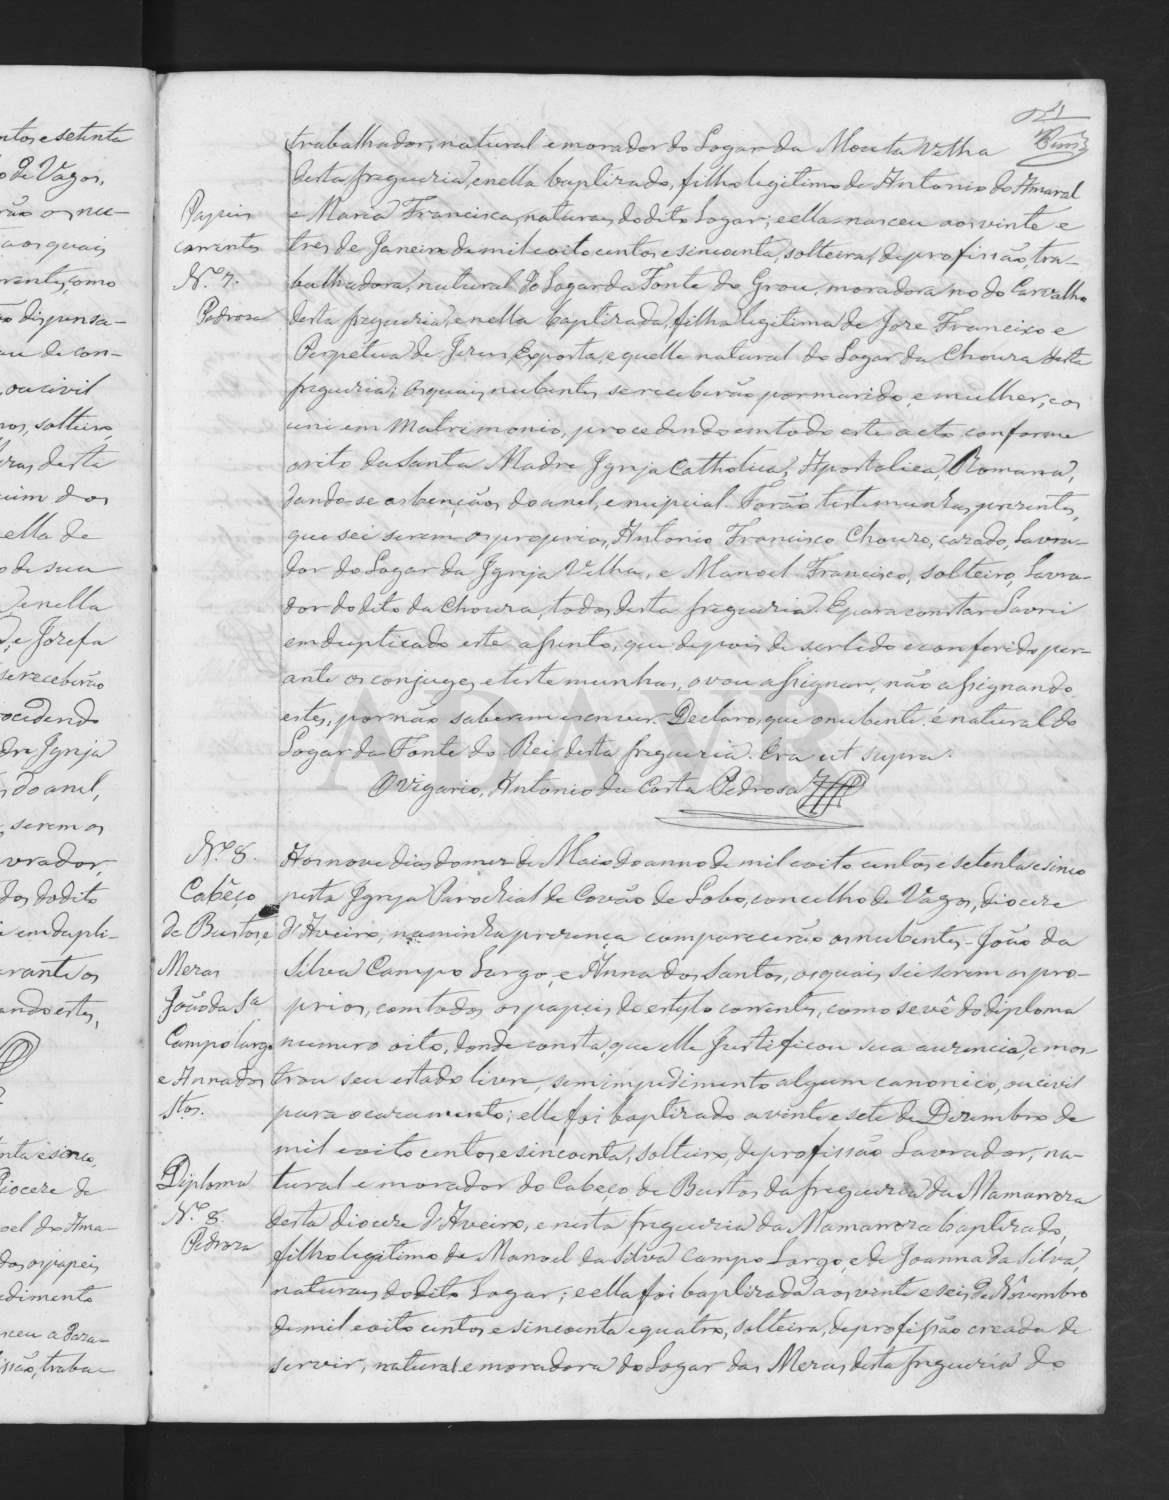 4
trabalhador, natural e morador do Logar da Mouta Velha
desta freguezia, e nella baptizado, filho legitimo de Antonio do Amaral
e Maria Francisca, naturaes do dito Logar; e ella nasceu aos vinte e
tres de Janeiro de mil oito centos e sincoenta, solteira, de profissão, tra-
balhadora, natural do Logar da Fonte do Grou, moradora no do Carvalho
desta freguezia, e nella baptizada, filha legitima de Joze Francisco e
Perpétua de Jezus, Exposta, e quelle natural do Logar da Choura desta
freguezia; os quaes nubentes se receberão por marido, e mulher, e os
uni em Matrimonio, procedendo em todo este acto conforme
o rito da Santa Madre Igreja Catholica, Apostolica, Romana,
dando-se as bençãos do anel, e nupcial. Forão testemunhas prezentes,
que sei serem os proprios, Antonio Francisco Chouro, cazado, Lavra-
dor do Logar da Igreja Velha, e Manoel Francisco, solteiro, Lavra-
dor do dito da Choura, todos desta freguezia. E para constar Lavrei
em duplicado este assento, que depois de ser lido e conferido per-
ante os conjuges e testemunhas, o vou assignar, não assignando
estes, por não saberem escrever. Declaro, que o nubente é natural do
Logar da Fonte do Rei desta freguezia. Era ut supra.
O Vigario, Antonio da Costa Pedrosa
Papeis
correntes
N.º 7.
Pedrosa
N.º 8.
Cabêço
de Bustos, e
Mezas
João da S.ª
Campo largo
e Anna dos
Stos.
Diploma
N.º 8.
Pedroza
Aos nove dias do mez de Maio do anno de mil oito centos e setenta e sinco
nesta Igreja Parochial de Covão de Lobo, concelho de Vagos, diocese
d'Aveiro, na minha prezença comparecerão os nubentes - João da
Silva Campo Largo, e Anna dos Santos, os quaes sei serem os pro-
prios, com todos os papeis do estylo correntes, como se vê do diploma
numero oito, donde consta, que elle justificou sua auzencia, e mos-
trou seu estado livre, sem impedimento algum canonico, ou civil
para o cazamento; elle foi baptizado a vinte e sete de Dezembro de
mil e oito centos e sincoenta, solteiro, de profissão Lavrador, na-
tural e morador do Cabeço de Bustos da freguezia da Mamarroza
desta diocese d'Aveiro, e nesta freguezia da Mamarroza baptizado,
filho legitimo de Manoel da Silva Campo Largo, e de Joanna da Silva,
naturaes do dito Logar; e ella foi baptizada aos vinte e seis de Novembro
de mil e oito centos e sincoenta e quatro, solteira, de profissão creada de
servir, natural e moradora do Logar das Mezas, desta freguezia do
ADAVR